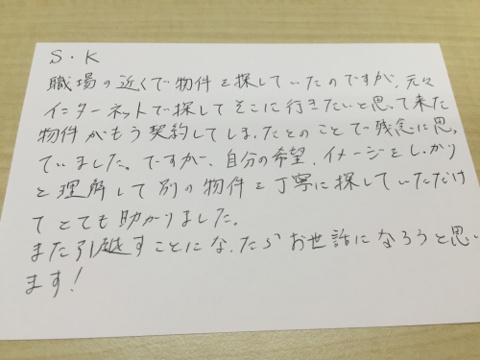 S・K
職場の近くで物件を探していたのですが、元々
インターネットで探してそこに行きたいと思って来た
物件がもう契約してしまったとのことで残念に思っ
ていました。ですが、自分の希望、イメージをしっかり
と理解して別の物件を丁寧に探していただけ
てとても助かりました。
また引越すことになったらお世話になろうと思い
ます!